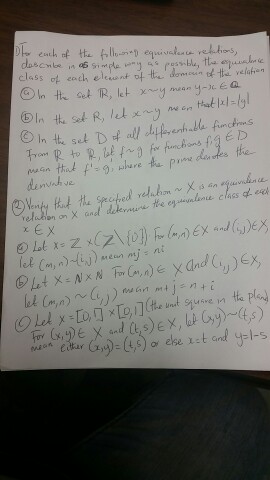 ① For each of the following equivalence relations,
describe in as simple way as possible, the equivalence
class of each element of the domain of the relation
ⓐ In the set ℝ, let x~y mean y-x ∈ ℚ
ⓑ In the set ℝ, let x~y mean that |x|=|y|
ⓒ In the set D of all differentiable functions
From ℝ to ℝ, let f~g for functions f,g ∈ D
mean that f'=g', where the prime denotes the
derivative
② Verify that the specified relation ~ X is an equivalence
relation on X and determine the equivalence class of each
x ∈ X
ⓐ Let X = ℤ × (ℤ \ {0}) For (m,n) ∈ X and (i,j) ∈ X,
let (m,n) ~ (i,j) mean mj = ni
ⓑ Let X = ℕ × ℕ For (m,n) ∈ X And (i,j) ∈ X,
let (m,n) ~ (i,j) mean m+j = n+i
ⓒ Let X = [0,1] × [0,1] (the unit square in the plane)
For (x,y) ∈ X and (t,s) ∈ X, let (x,y) ~ (t,s)
mean either (x,y) = (t,s) or else x=t and y=1-s